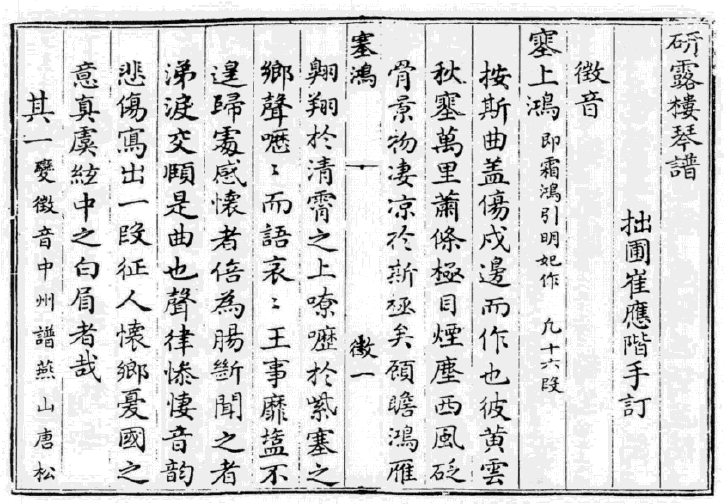 研露樓琴譜
拙圃崔應階手訂
徵音
塞上鴻 即霜鴻引明妃作 九十六段
按斯曲蓋傷戍邊而作也彼黃雲
秋塞萬里蕭條極目煙塵西風砭
骨景物凄凉於斯極矣頋瞻鴻雁
塞鴻 徵一
翺翔於清霄之上嘹嚦於紫塞之
鄉聲嚦〻而語哀〻王事靡盬不
遑歸處感懷者倍為腸斷聞之者
涕淚交頤是曲也聲律慘悽音韵
悲傷寫出一段征人懷鄉憂國之
意真虞絃中之白眉者哉
其一 變徵音中州譜燕山唐松